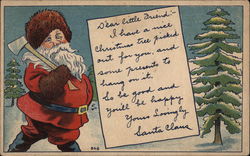 Dear little Friend:-
I have a nice
Christmas tree picked
out for you and
some presents to
hang on it.
So be good and
you'll be happy
Yours Lovingly
Santa Claus